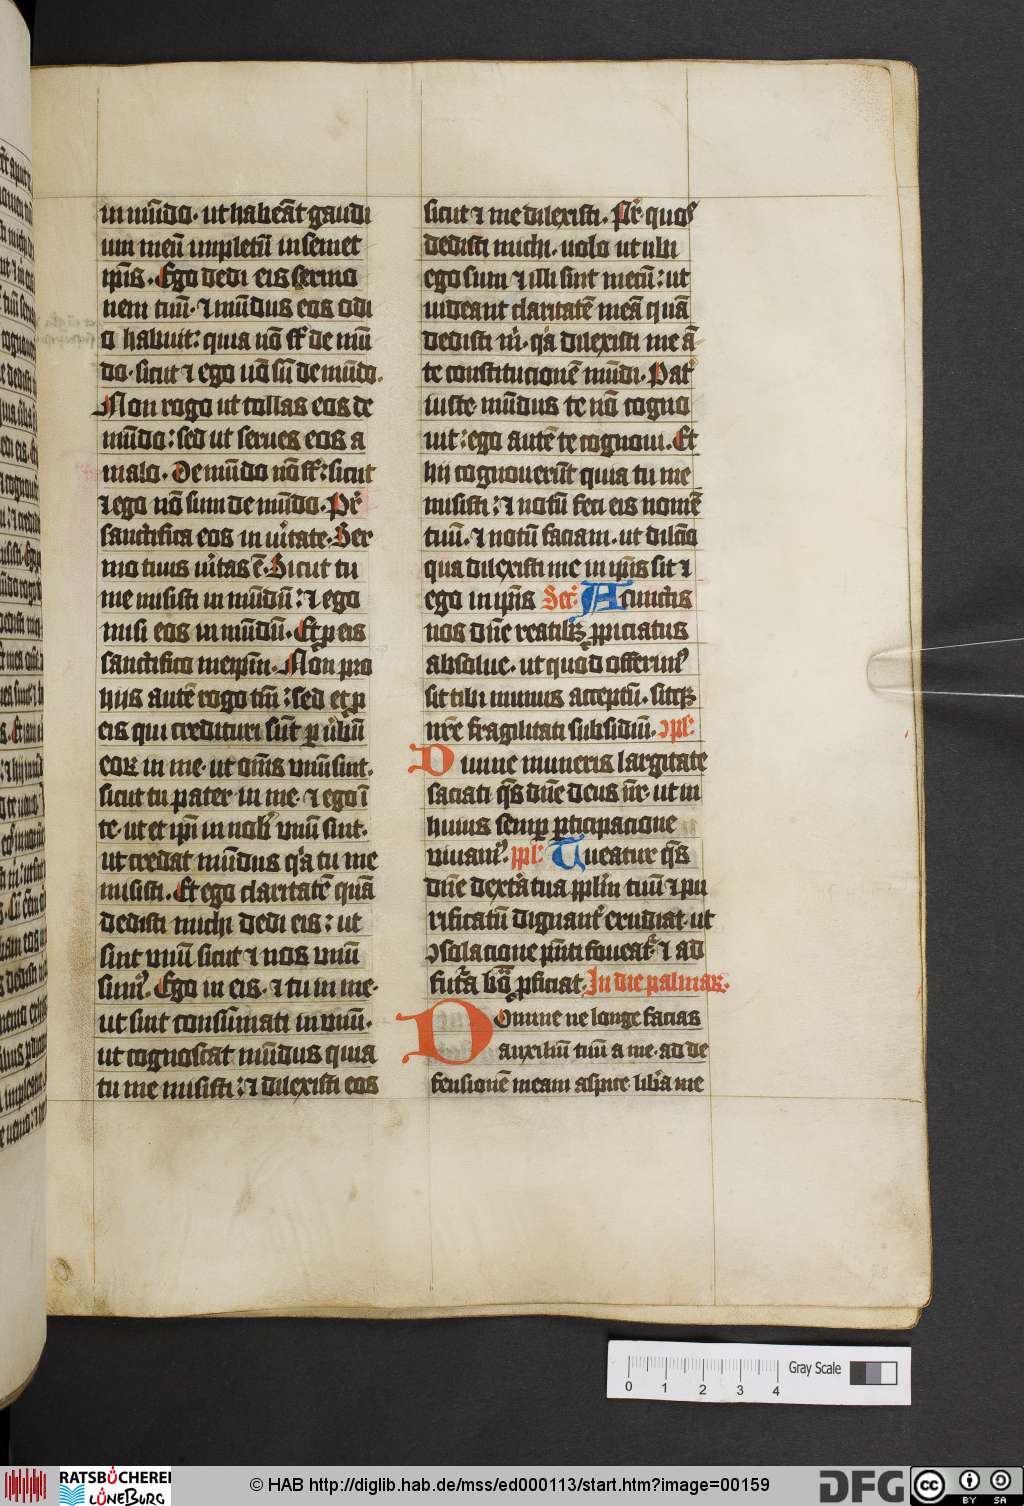 in mu̅do· ut habea̅t gaudi
um meu̅ impletu̅ in semet
ip̅is· Ego dedi eis sermo
nem tuu̅· ⁊ mu̅dus eos odi
o habuit: quia no̅ su̅t de mu̅
do· sicut ⁊ ego no̅ su̅ de mu̅do·
Non rogo ut tollas eos de
mu̅do: sed ut serues eos a
malo· De mu̅do no̅ su̅t: sicut
⁊ ego no̅ sum de mu̅do· Pr̅
sanctifica eos in ueritate· Ser
mo tuus ueritas e̅· Sicut tu
me misisti in mu̅du̅: ⁊ ego
misi eos in mu̅du̅· Et p̱ eis
sanctifico meip̅m· Non pro
hijs aute̅ rogo tm̅: sed et p̱
eis qui credituri su̅t p̱ uerbu̅
eoꝝ in me· ut om̅s vnu̅ sint·
sicut tu pater in me· ⁊ ego i̅
te· ut et ip̅i in nobis vnu̅ sint·
ut credat mu̅dus qa tu me
misisti· Et ego claritate̅ qua̅
dedisti michi dedi eis: ut
sint vnu̅ sicut ⁊ nos vnu̅
sumꝰ· Ego in eis· ⁊ tu in me·
ut sint consu̅mati in vnu̅·
ut cognoscat mu̅dus quia
tu me misisti: ⁊ dilexisti eos
sicut ⁊ me dilexisti· Pr̅ quos
dedisti michi· uolo ut ubi
ego sum ⁊ illi sint mecu̅: ut
uideant claritate̅ mea̅ qua̅
dedisti m· qa dilexisti me a̅
te constitucione̅ mu̅di· Pat̉
iuste mu̅dus te no̅ cogno
uit: ego aute̅ te cognoui· Et
hij cognoueru̅t quia tu me
misisti: ⁊ notu̅ feci eis nome̅
tuu̅· ⁊ notu̅ faciam· ut dil̅co
qua dilexisti me in ip̅is sit ⁊
ego in ip̅is Secr̅· A cunctis
nos dn̅e reatibꝫ ꝓpiciatus
absolue· ut quod offerimꝰ
sit tibi munus acceptu̅· sitqꝫ
nr̅e fragilitati subsidiu̅· ↄpl̅:
Diuine muneris largitate
saciati qs̅ dn̅e deus nr̅· ut in
huius semp̱ p̱ticipacione
viuamꝰ· ppl̅: Tueatur qs̅
dn̅e dextra tua ppl̅m tuu̅ ⁊ pu
rificatu̅ dignant̉ erudiat· ut
ↄsolacione pn̅ti foueat̉· ⁊ ad
futura bo̅a ꝓficiat· In die palmaꝝ·
Domine ne longe facias
auxiliu̅ tuu̅ a me· ad de
fensione̅ meam aspice lib̉a me
Gray Scale
0 1 2 3 4
RATSBÜCHEREI LÜNEBURG
© HAB http://diglib.hab.de/mss/ed000113/start.htm?image=00159
DFG
cc BY SA